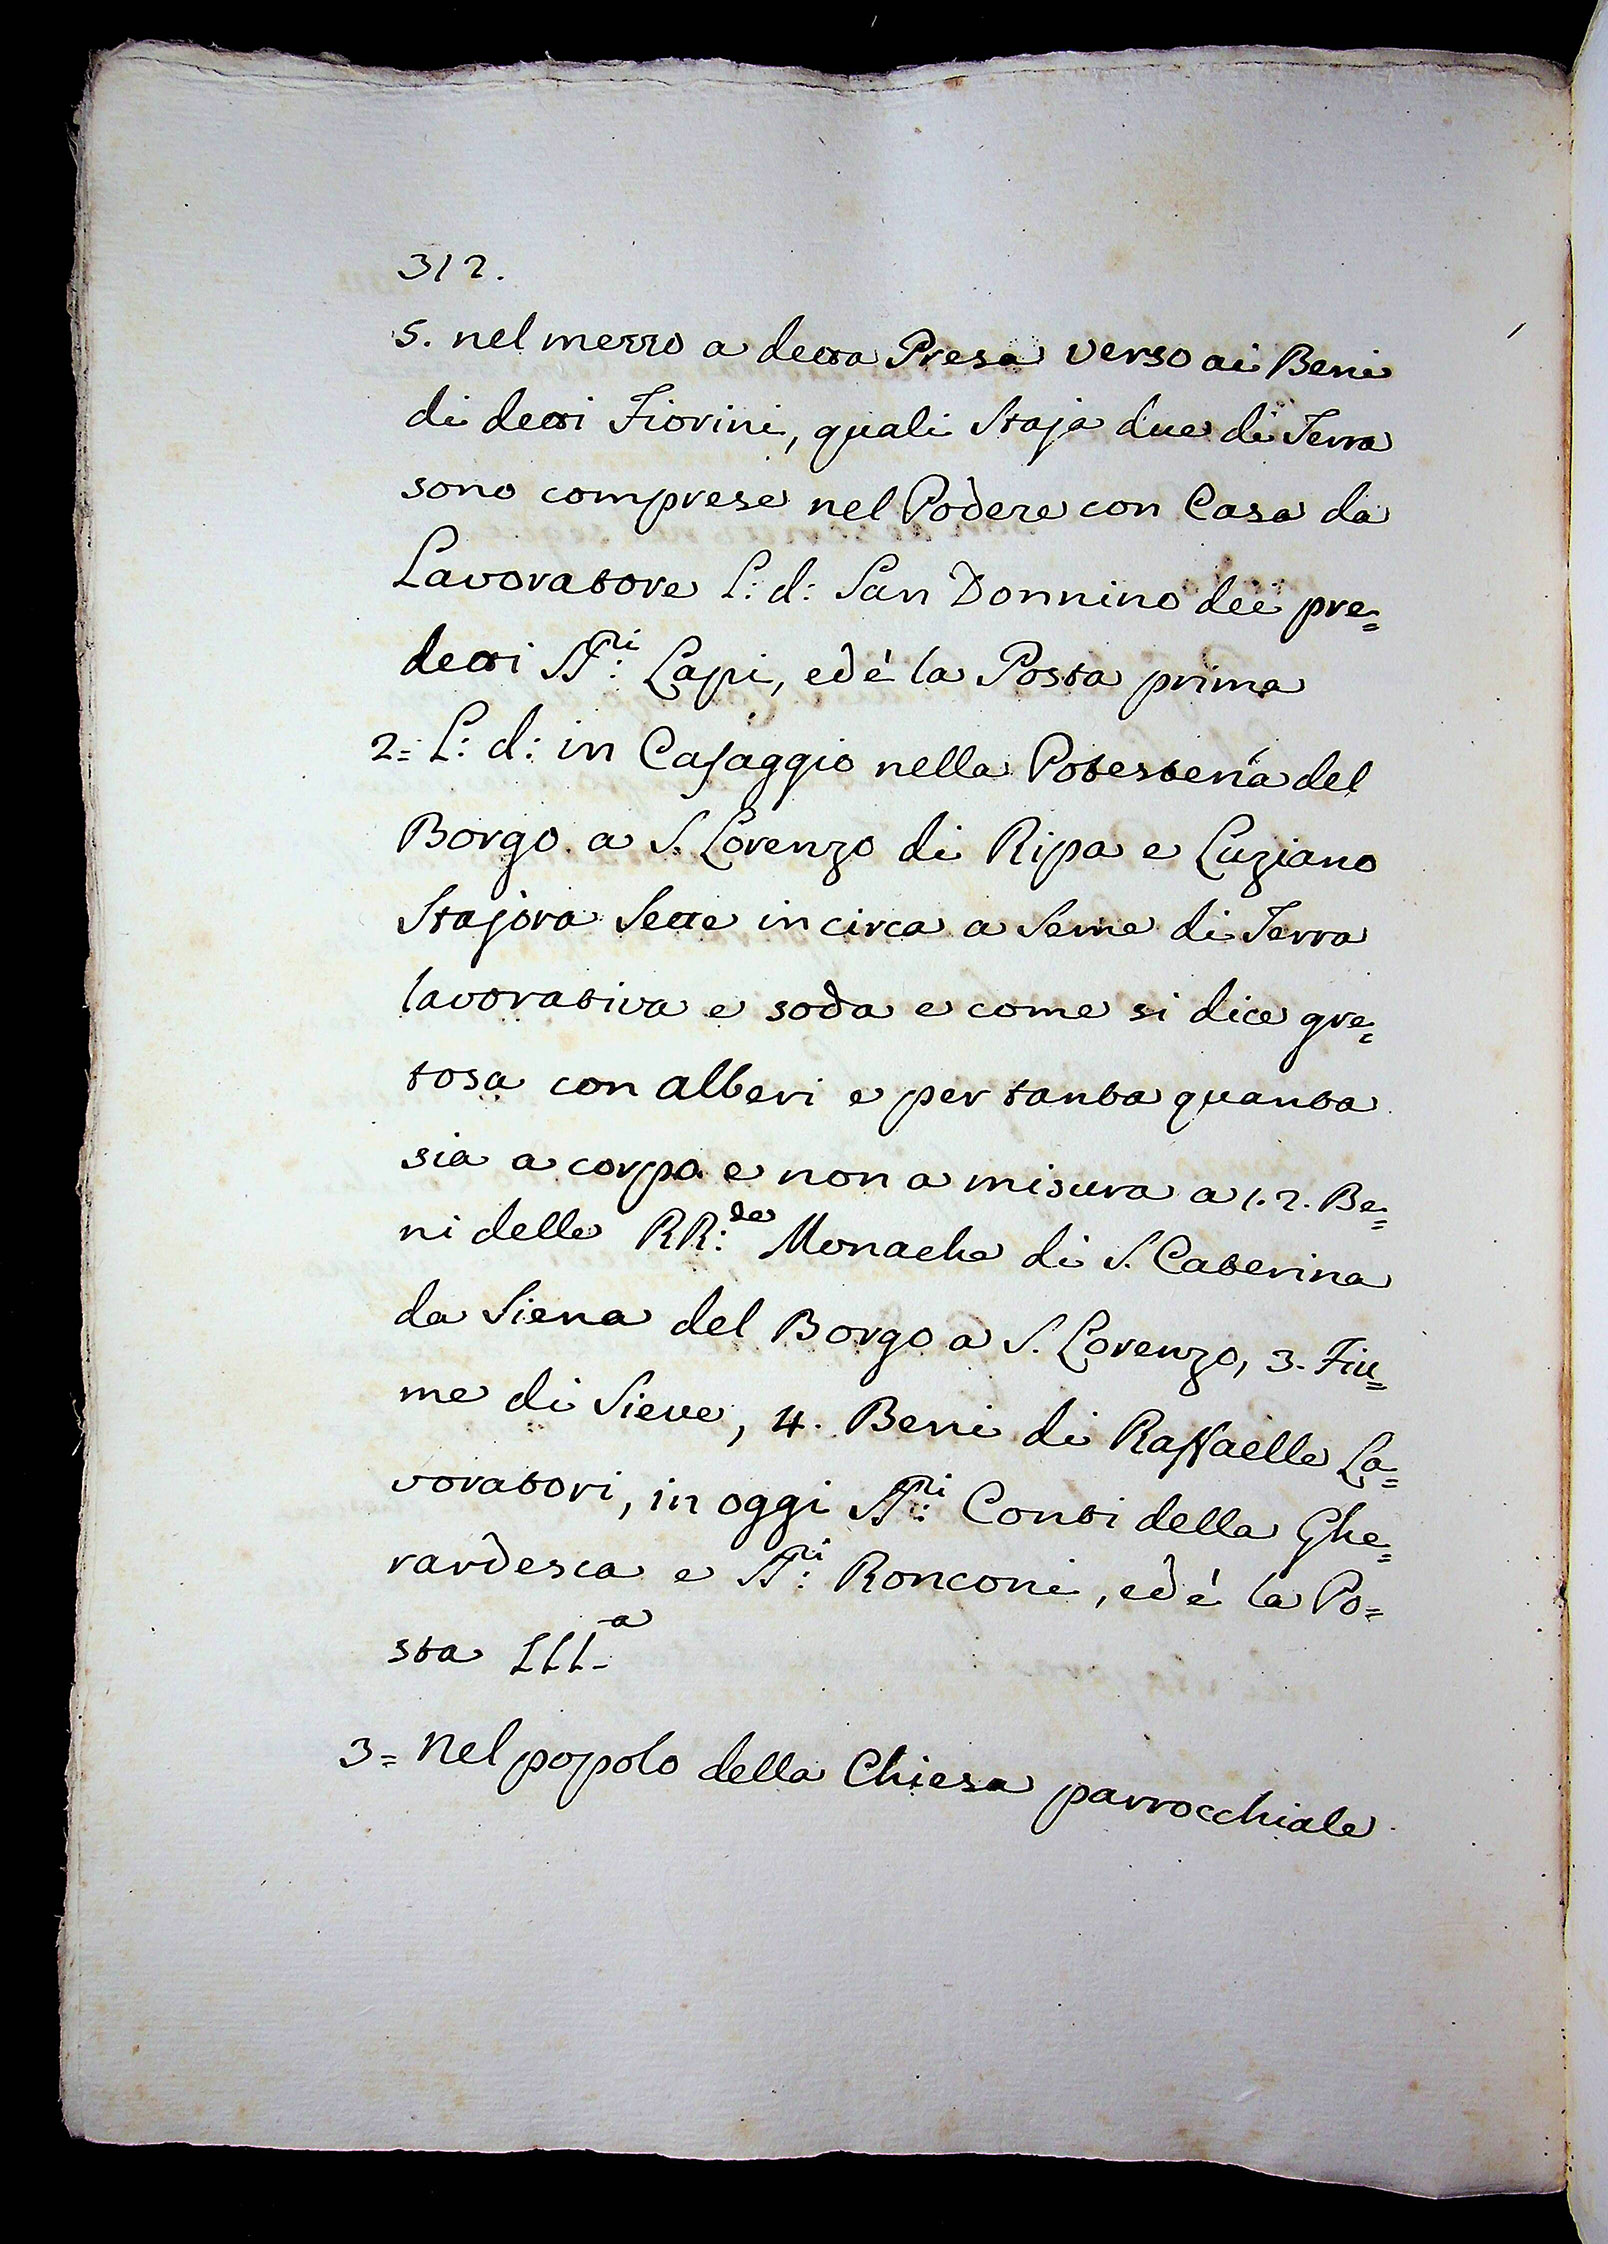 312.
5. nel mezzo a detta Presa verso ai Beni
di detti Fiorini, quali Staja due di Terra
sono comprese nel Podere con Casa da
Lavoratore L: d: San Donnino dei pre=
detti SS.ri: Lapi, ed è la Posta prima
2= L: d: in Casaggio nella Potesteria del
Borgo a S. Lorenzo di Ripa e Luziano
Stajora Sette in circa a Seme di Terra
lavorativa e soda e come si dice gre=
tosa con alberi e per tanta quanta
sia a corpo e non a misura a 1. 2. Be=
ni delle RR:de Monache di S. Caterina
da Siena del Borgo a S. Lorenzo, 3. Fiu=
me di Sieve, 4. Beni di Raffaelle La=
voratori, in oggi SS.ri: Conti della Ghe=
rardesca e SS.ri: Ronconi, ed è la Po=
sta III.a
3= Nel popolo della Chiesa parrocchiale